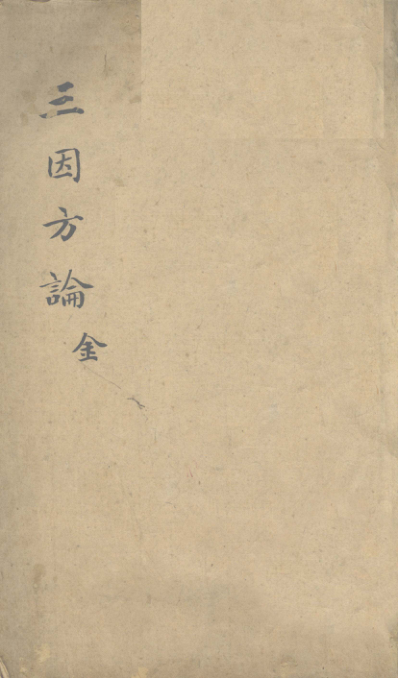 三因方論
金